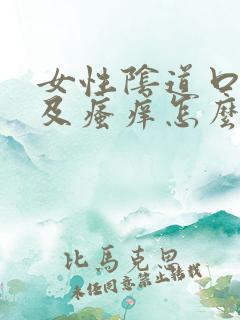 女性陰道口
及瘙痒怎麼
比馬克思
未任同意禁止転载